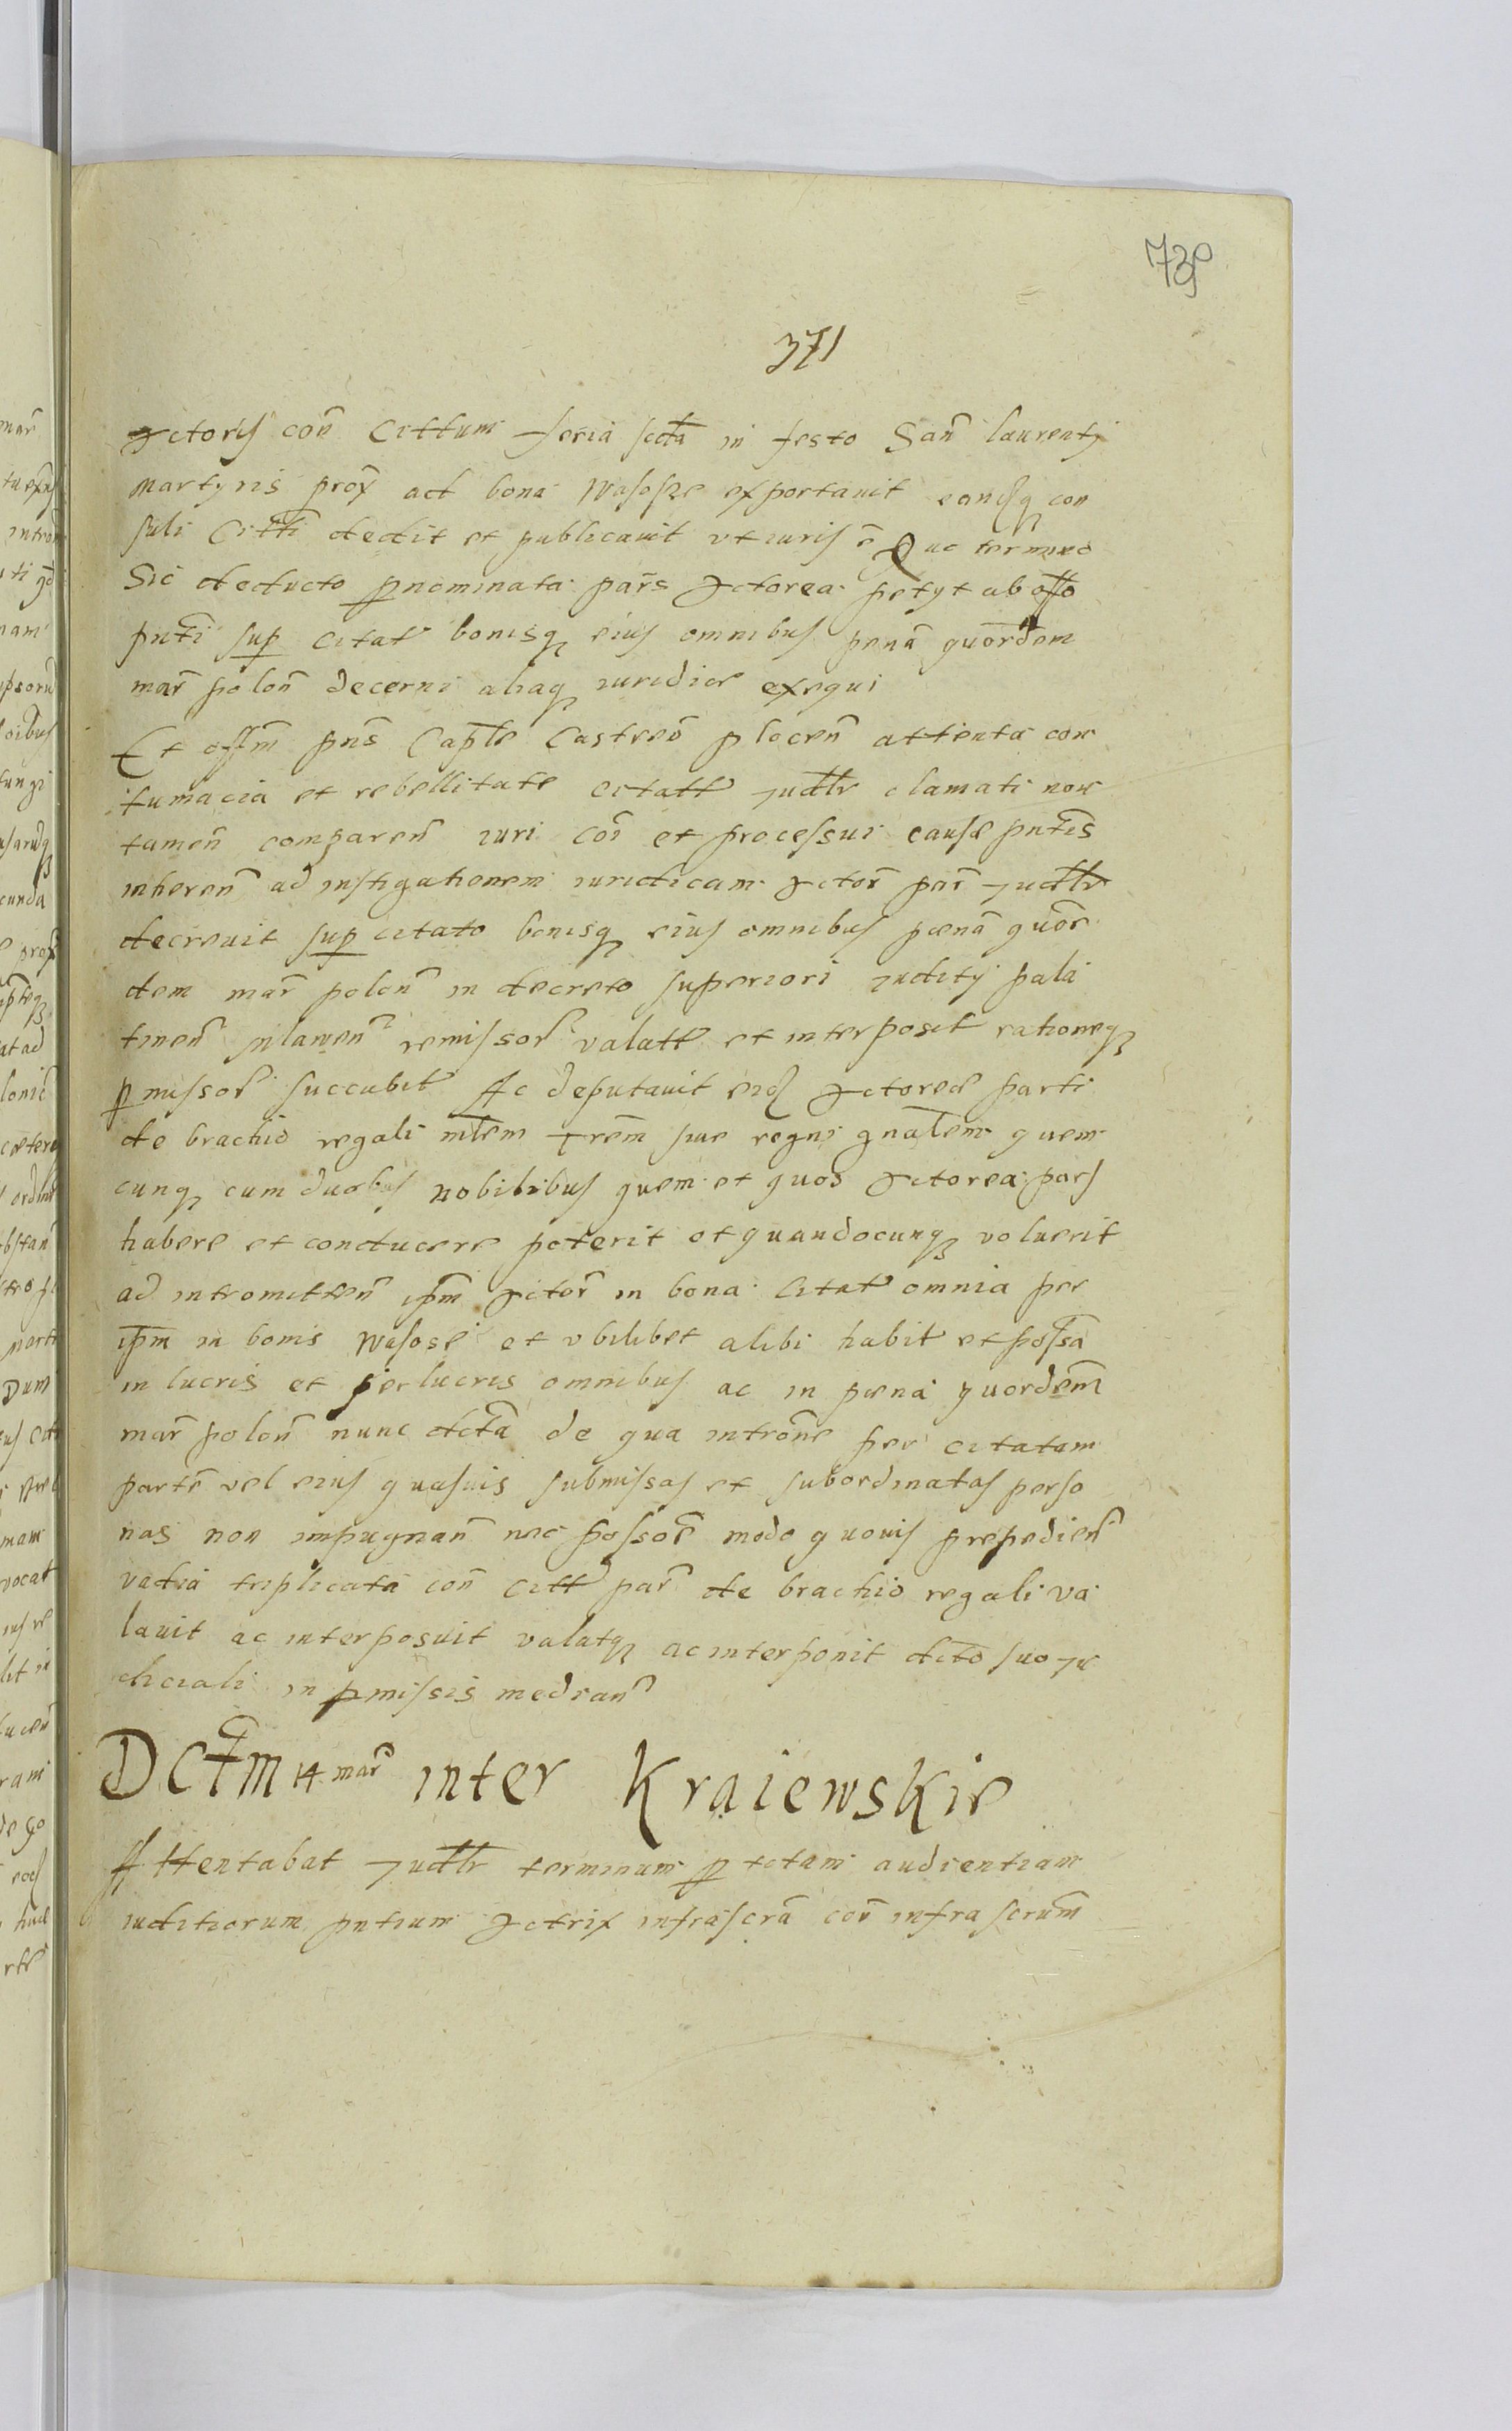 739
371
Actoris con̄ Cittum feria sexta in festo San̄ laurentÿ
Martyris prox̄ ad bona Wasosze exportauit eandq̨ con
suli Citti dedit et publicauit vt iuris ē Quo termino
Sic deducto p̱nominata pars Actorea petyt ab offo
pn̄ti sup̱ citat̄ bonisq̨ eius omnibus penā quordem
mar̄ polon̄ decerni aliaq̨ iuridice exequi
Et offm̄ pn̄s Capłe Castren̄ plocen̄ attenta con
tumacia et rebellitate citatt̄ Iudłr clamati non
tamen̄ comparen̄ iuri coī et processui causæ pn̄tis
inheren̄ ad instigationem iuridicam Actor̄ par̄ Iudłr
decreuit sup̱ citato bonisq̨ eius omnibus pœnā quor
dem mar̄ polon̄ in decreto superiori iuditÿ pala
tinen̄ remissor̄ valatt̄ et interposit̄ rationeq̨
p̱missor̄ succubit̄ Ac deputauit eid Actoreæ parti
de brachio regali młem trem̄ siue regni gnałem quem
cunq̨ cum duobus nobilibus quem et quos Actorea pars
habere et conducere poterit et quandocunq̨ voluerit
ad intromitten̄ ipm̄ Actor̄ in bona Citat̄ omnia per
ipm̄ in bonis Wasose et vbilibet alibi habit̄ et possa
in lucris et perlucris omnibus ac in pœna quordem̄
mar̄ polon̄ nunc dcta de qua introne per citatam
partē vel eius quasuis submissas et subordinatas perso
nas non impugnan̄ nec possor̄ modo quouis prepedien̄
vadia triplicata con̄ citt̄ par̄ de brachio regali va
lauit ac interposuit valatq̨ ac interponit dcto suo Iu
diciali in p̱missis median̄
Dctm̄ 14 mar̄ inter Kraiewskie
Attentabat Iudłr terminum p̱ totam audientiam
iuditiorum pntium Actrix infrascrā con̄ infrascrum̄